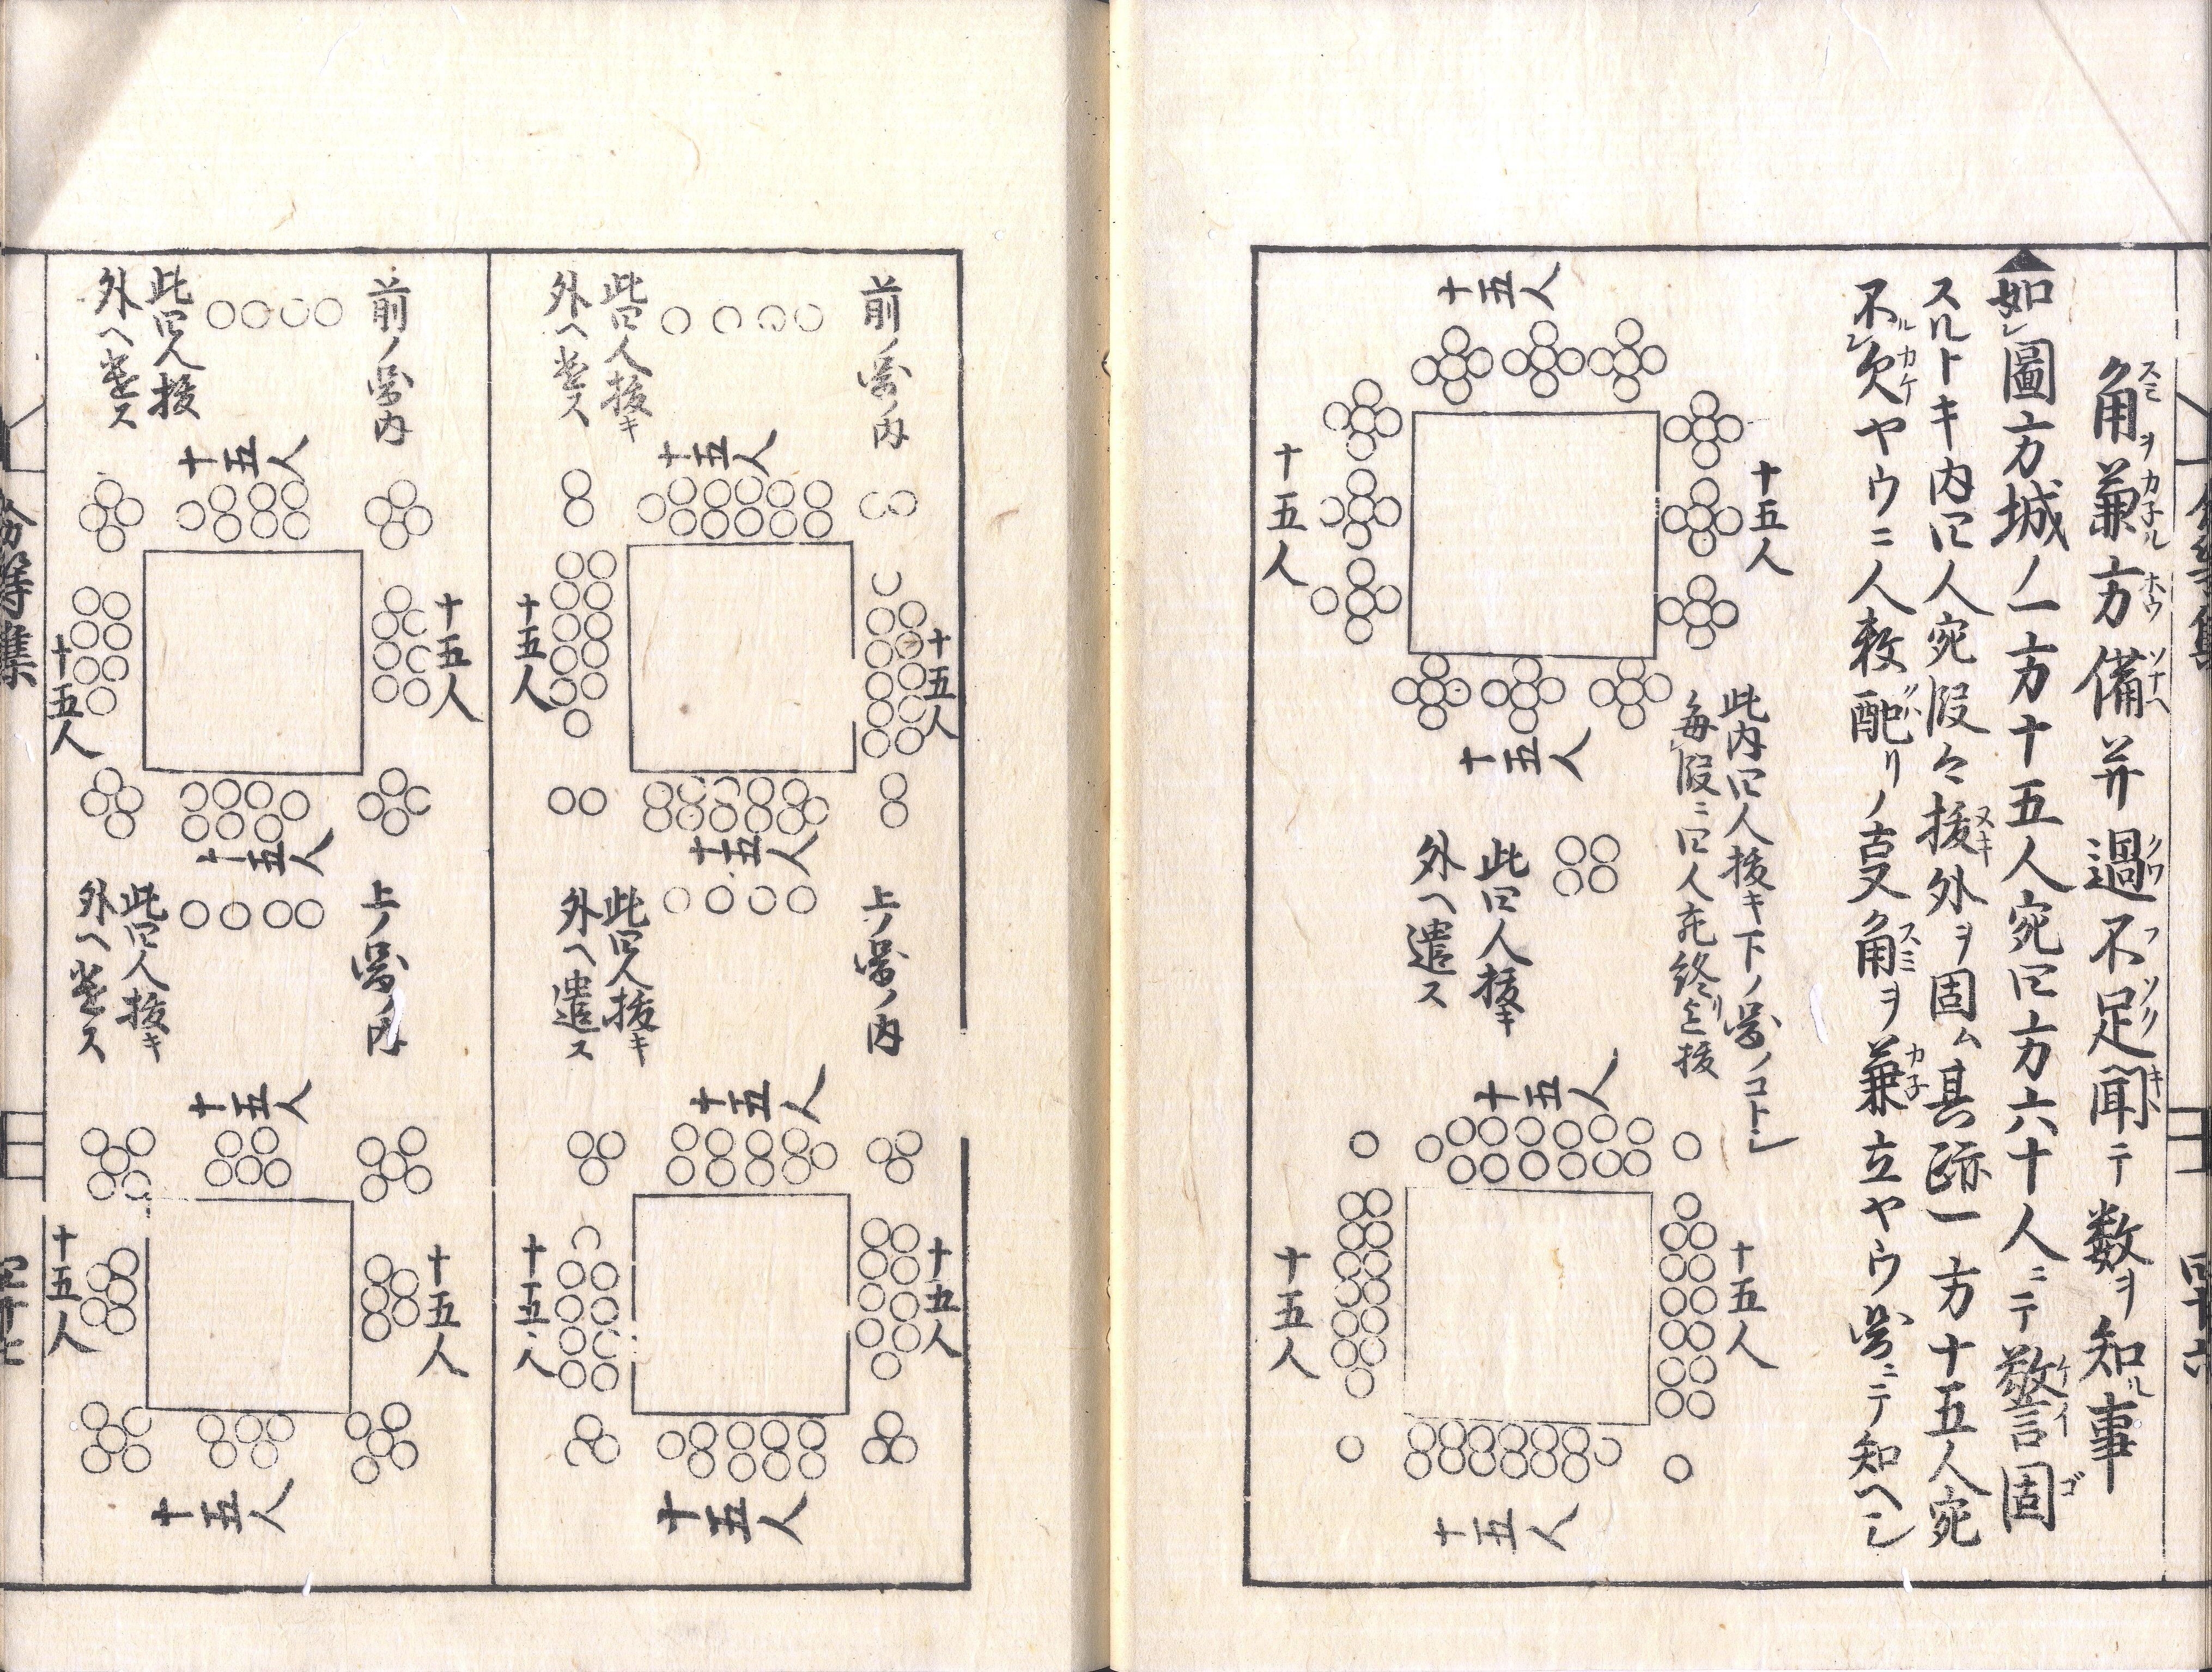 角ヲ兼方備并過不足聞テ数ヲ知ル事
如レ圖方城ノ一方十五人宛四方六十人ニテ警固
スルトキ内四人宛假々援外ヲ固ム其跡一方十五人宛
不レ欠ヤウニ人数配リノ叓角ヲ兼立ヤウ圖ニテ知ヘシ
十五人
十五人
十五人
十五人
此内四人援キ下ノ圖ノコトシ
毎假ニ四人充終ヲ援
此四人援キ
外ヘ遣ス
十五人
十五人
十五人
十五人
四十六
前ノ圖ノ内
此四人援キ
外ヘ遣ス
十五人
十五人
十五人
十五人
上ノ圖ノ内
此四人援キ
外ヘ遣ス
十五人
十五人
十五人
十五人
前ノ圖ノ内
此四人援
外ヘ遣ス
十五人
十五人
十五人
十五人
上ノ圖ノ内
此四人援キ
外ヘ遣ス
十五人
十五人
十五人
十五人